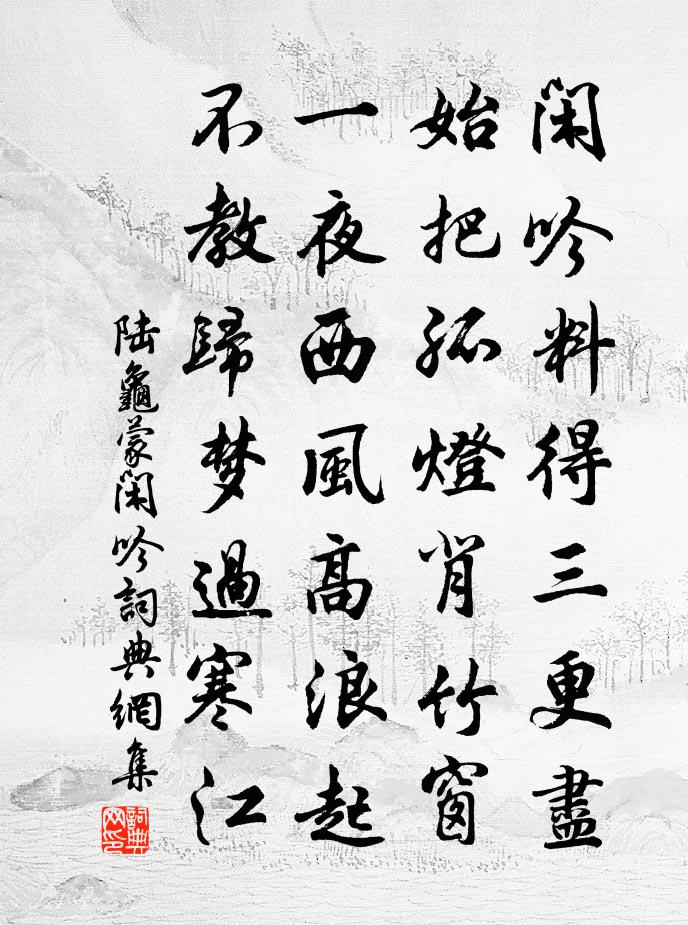 閑吟料得三更盡
始把孤燈背竹窗
一夜西風高浪起
不教歸夢過寒江
陸龜蒙閑吟詞典網集
詞典网印